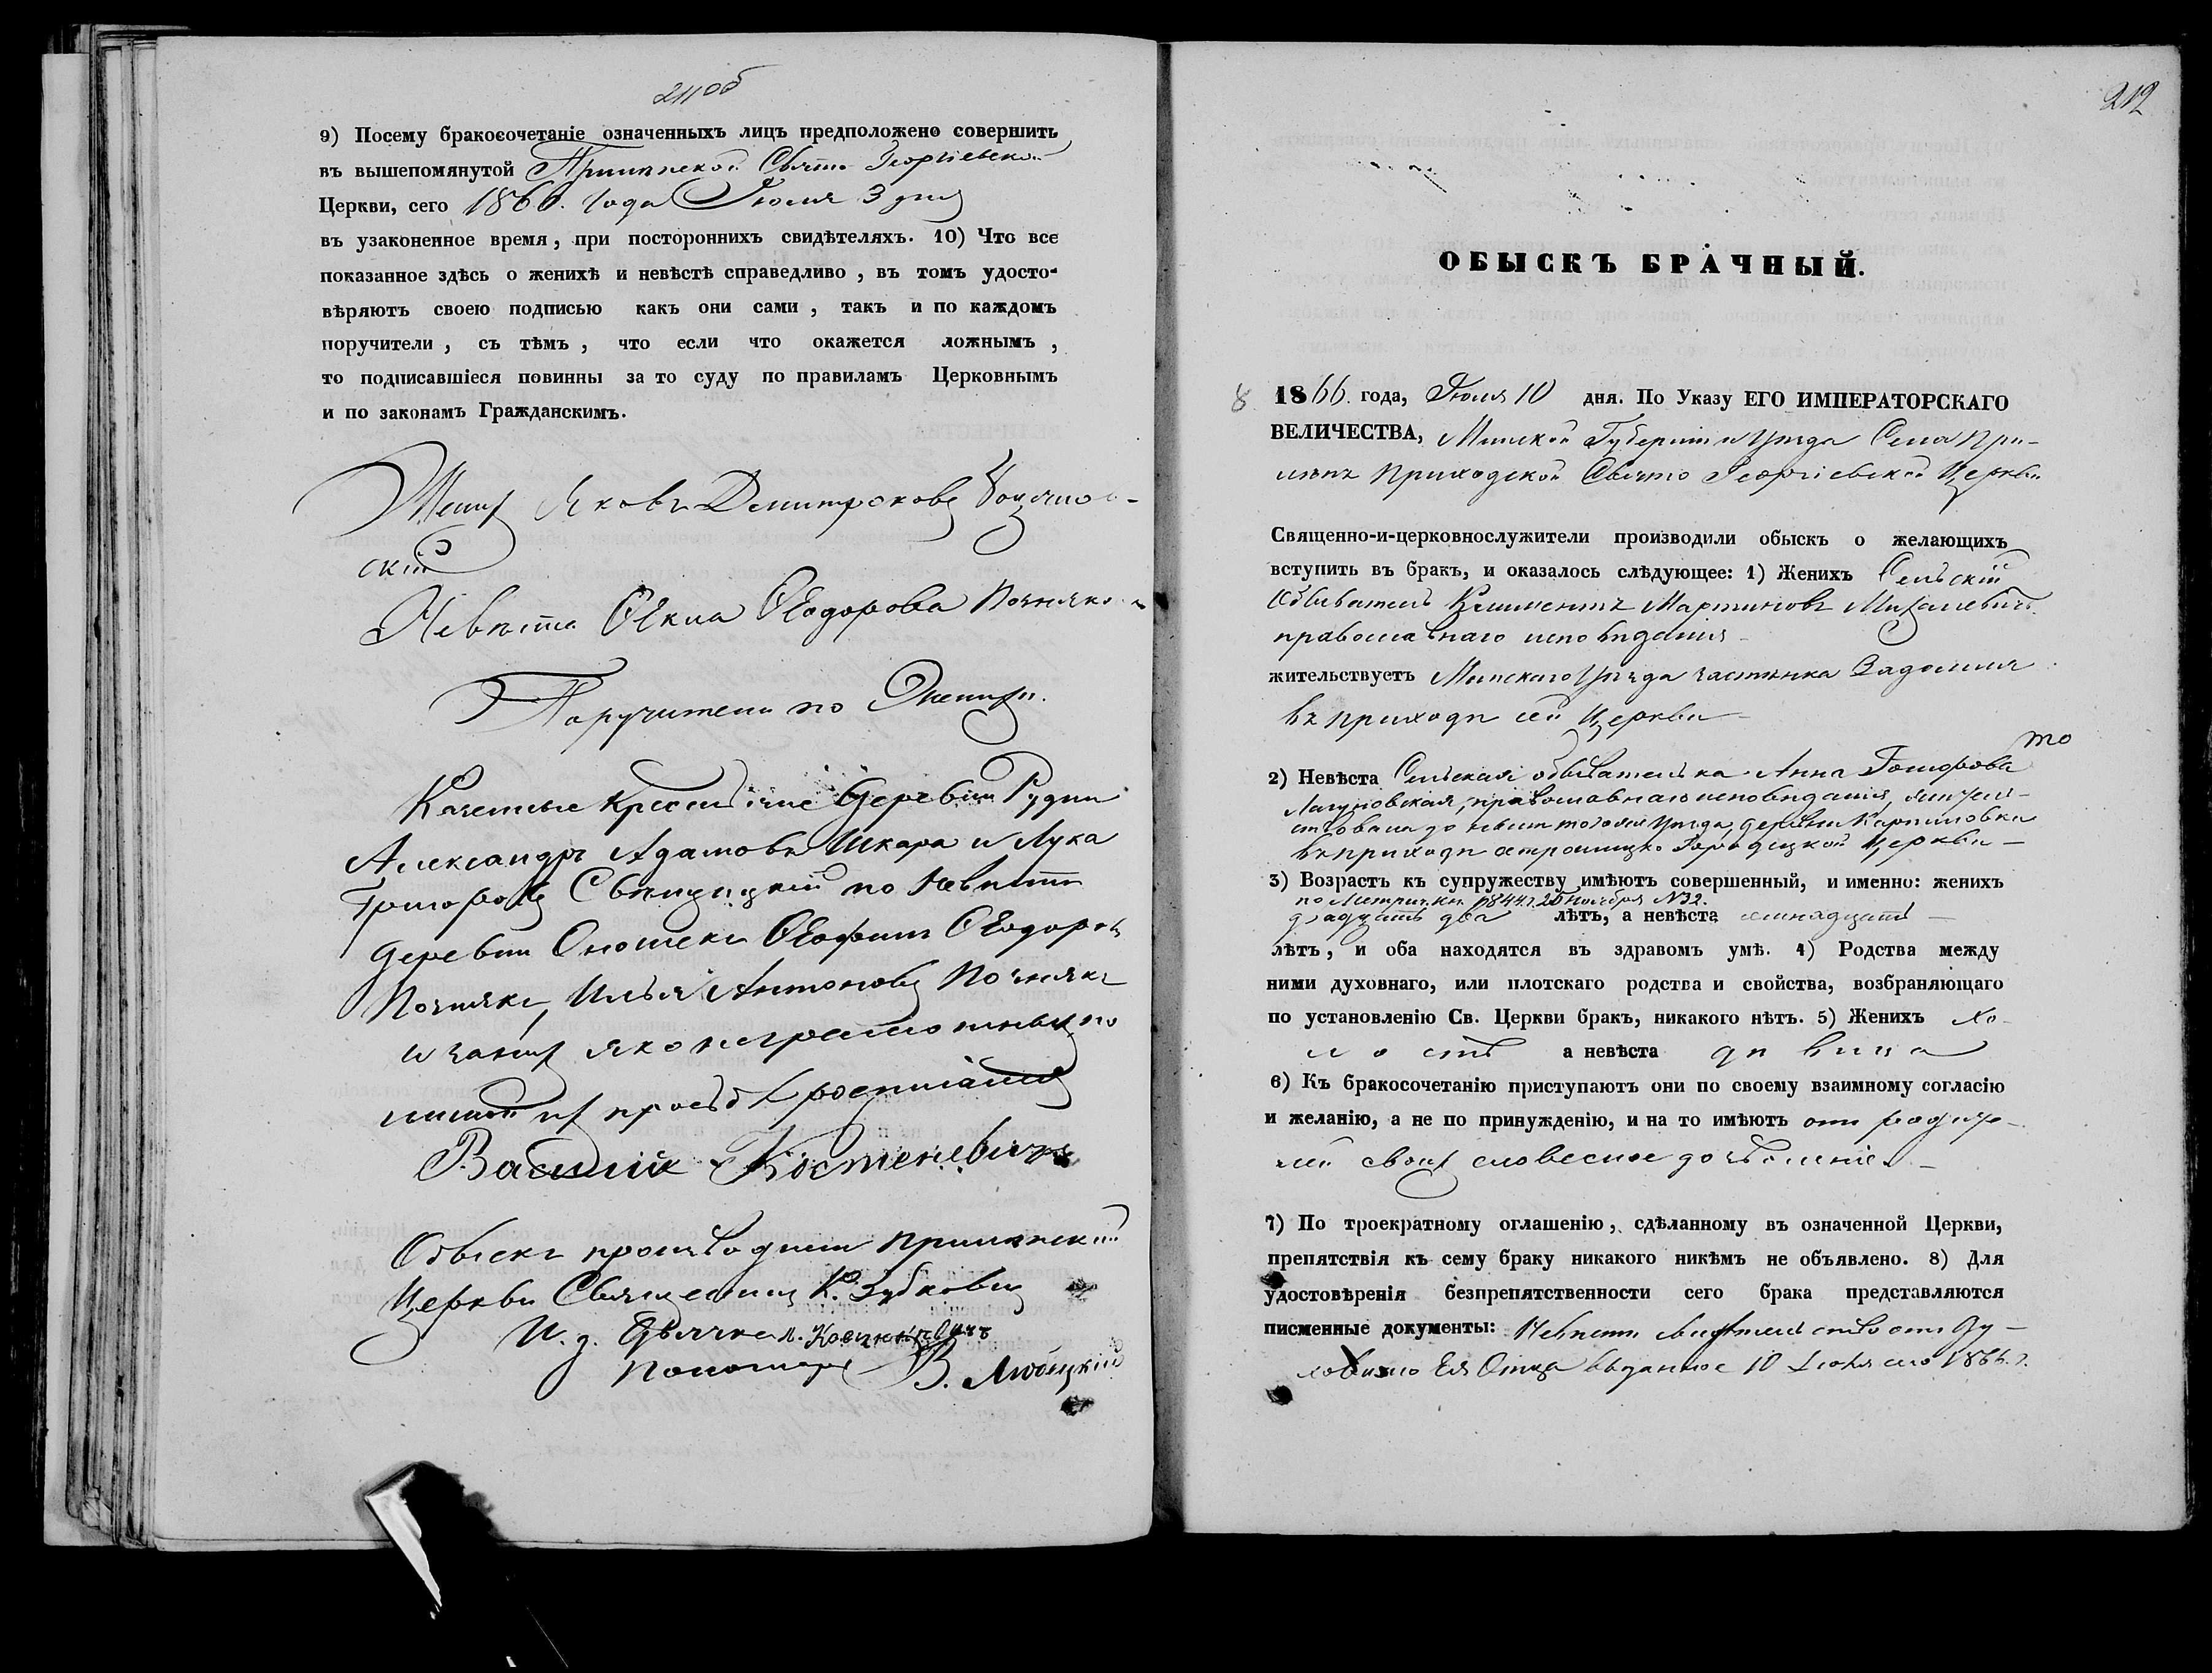 211об
9) Посему бракосочетаніе означенныхъ лицъ предположено совершить
въ вышепомянутой Прилѣпской Свято Георгіевской
Церкви, сего 1866. года Іюля 3 дня
въ узаконенное время, при постороннихъ свидѣтеляхъ. 10) Что все
показанное здѣсь о женихѣ и невѣстѣ справедливо, въ томъ удосто-
вѣряютъ своею подписью какъ они сами, такъ и по каждомъ
поручители, съ тѣмъ, что если что окажется ложнымъ,
то подписавшіеся повинны за то суду по правиламъ Церковнымъ
и по законамъ Гражданскимъ.
Женихъ Яковъ
скій
Невѣста Ѳекла Ѳеодорова
Поручители по Женихѣ.
Казенные крестьяне деревни Рудни
Александръ Адамовъ Шкара и Лука
Григоровъ по Невѣстѣ
деревни Ѳеодоровъ
Илья Антоновъ
и за нихъ яко неграмотныхъ по
ихъ просьбѣ росписался
Василій Костеневичъ
Обыскъ производили Прилѣпской
Церкви Священникъ К. Зубковичъ
И. д. Дьячка
Пономарь В. Любецкій
212
ОБЫСКЪ БРАЧНЫЙ.
8 1866. года, Іюля 10 дня. По Указу ЕГО ИМПЕРАТОРСКАГО
ВЕЛИЧЕСТВА, Минской Губерніи и Уѣзда Села При-
лѣпъ Приходской Свято Георгіевской Церкви
Священно-и-церковнослужители производили обыскъ о желающихъ
вступить въ бракъ, и оказалось слѣдующее: 1) Женихъ Сельскій
Обыватель Климентъ Мартиновъ Михалевичъ
православнаго исповѣданія
жительствуетъ Минскаго Уѣзда застѣнка Задомля
въ приходѣ сей Церкви
2) Невѣста Сельская обывателька Анна
православнаго исповѣданія, жительст-
вовала до нынѣ того же Уѣзда, деревни Карпиловки
въ приходѣ Острошицко Городецкой Церкви
3) Возрастъ къ супружеству имѣютъ совершенный, и именно: женихъ
по Метрич. кн. 1844 г. 20 Ноября №32.
двадцать два лѣтъ, а невѣста
лѣтъ, и оба находятся въ здравомъ умѣ. 4) Родства между
ними духовнаго, или плотскаго родства и свойства, возбраняющаго
по установленію Св. Церкви бракъ, никакого нѣтъ. 5) Женихъ хо-
лостъ а невѣста дѣвица
6) Къ бракосочетанію приступаютъ они по своему взаимному согласію
и желанію, а не по принужденію, и на то имѣютъ отъ родите-
лей своихъ словесное дозволеніе
7) По троекратному оглашенію, сдѣланному въ означенной Церкви,
препятствія къ сему браку никакого никѣмъ не объявлено. 8) Для
удостовѣренія безпрепятственности сего брака представляются
писменные документы: Невѣсты свидѣтельство отъ Ду-
ховнаго Ея Отца выданное 10 Іюля сего 1866. г.